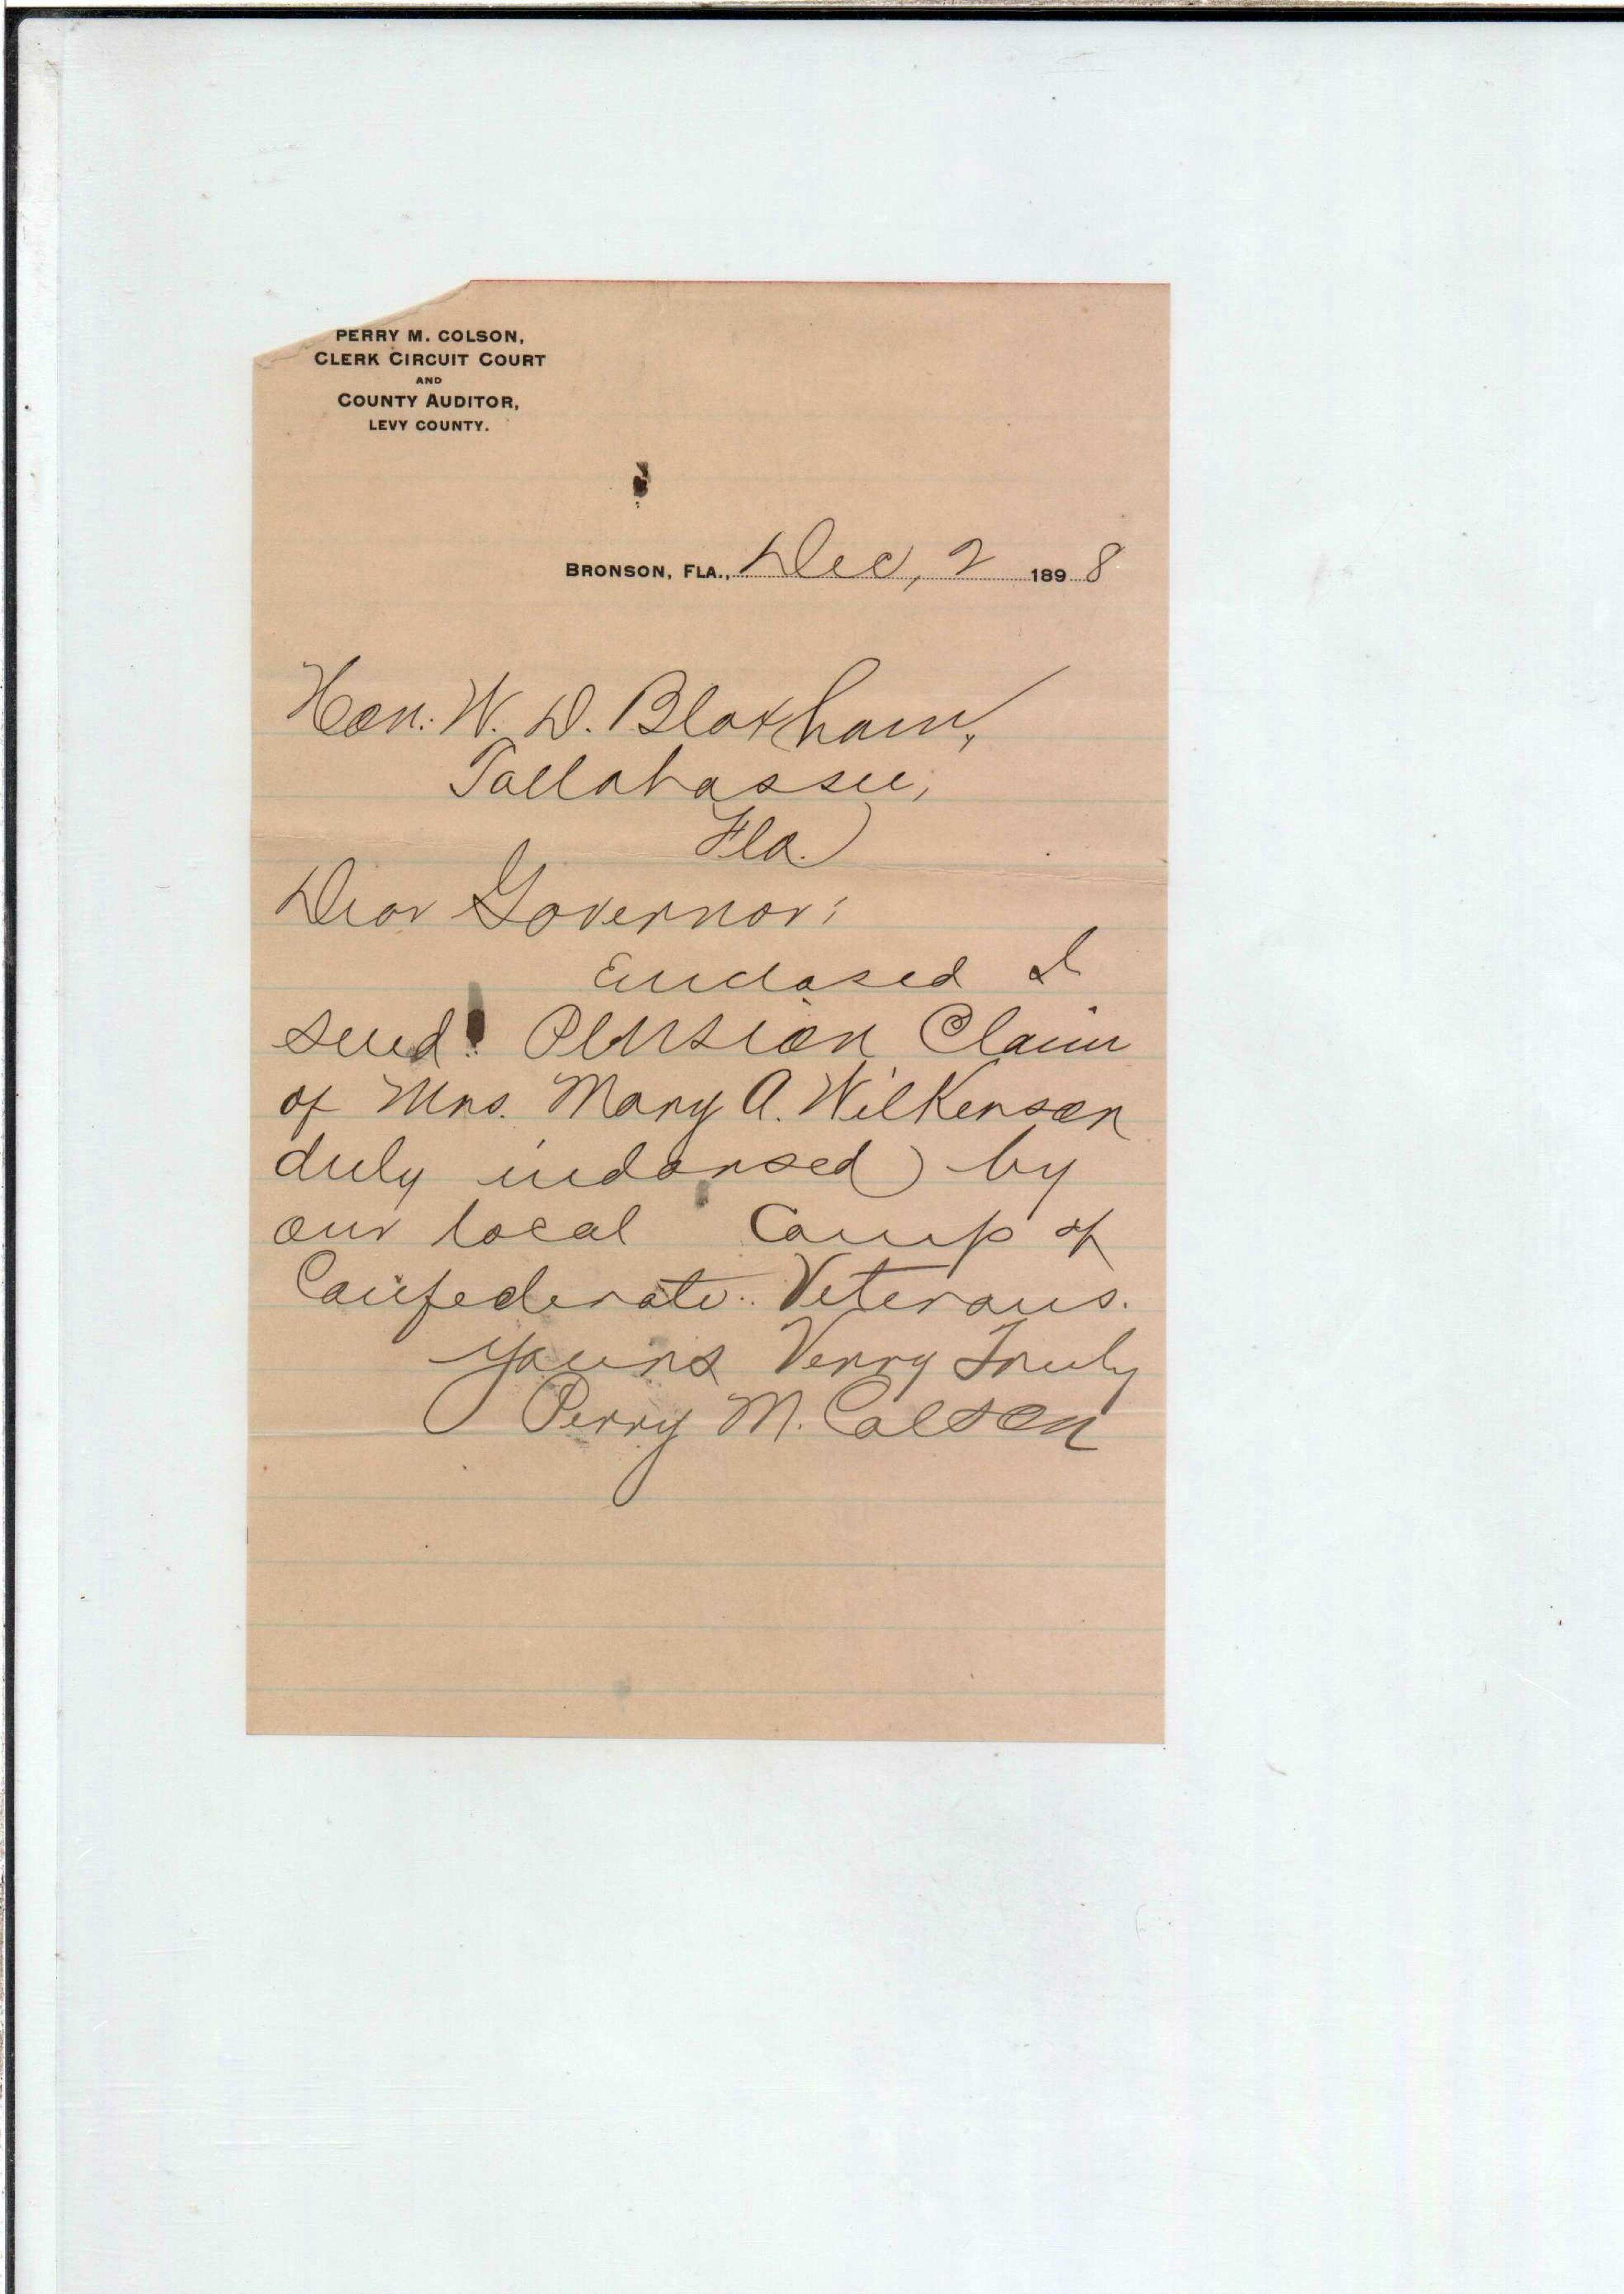 PERRY M. COLSON,
CLERK CIRCUIT COURT
AND
COUNTY AUDITOR,
LEVY COUNTY.
BRONSON, FLA., Dec, 2 1898
Hon. W. D. Bloxham,
Tallahassee,
Fla.
Dear Governor:
Enclosed I
send Pension Claim
of Mrs. Mary A. Wilkerson
duly indorsed by
our local Camp of
Confederate Veterans.
Yours Verry Truly
Perry M. Colson